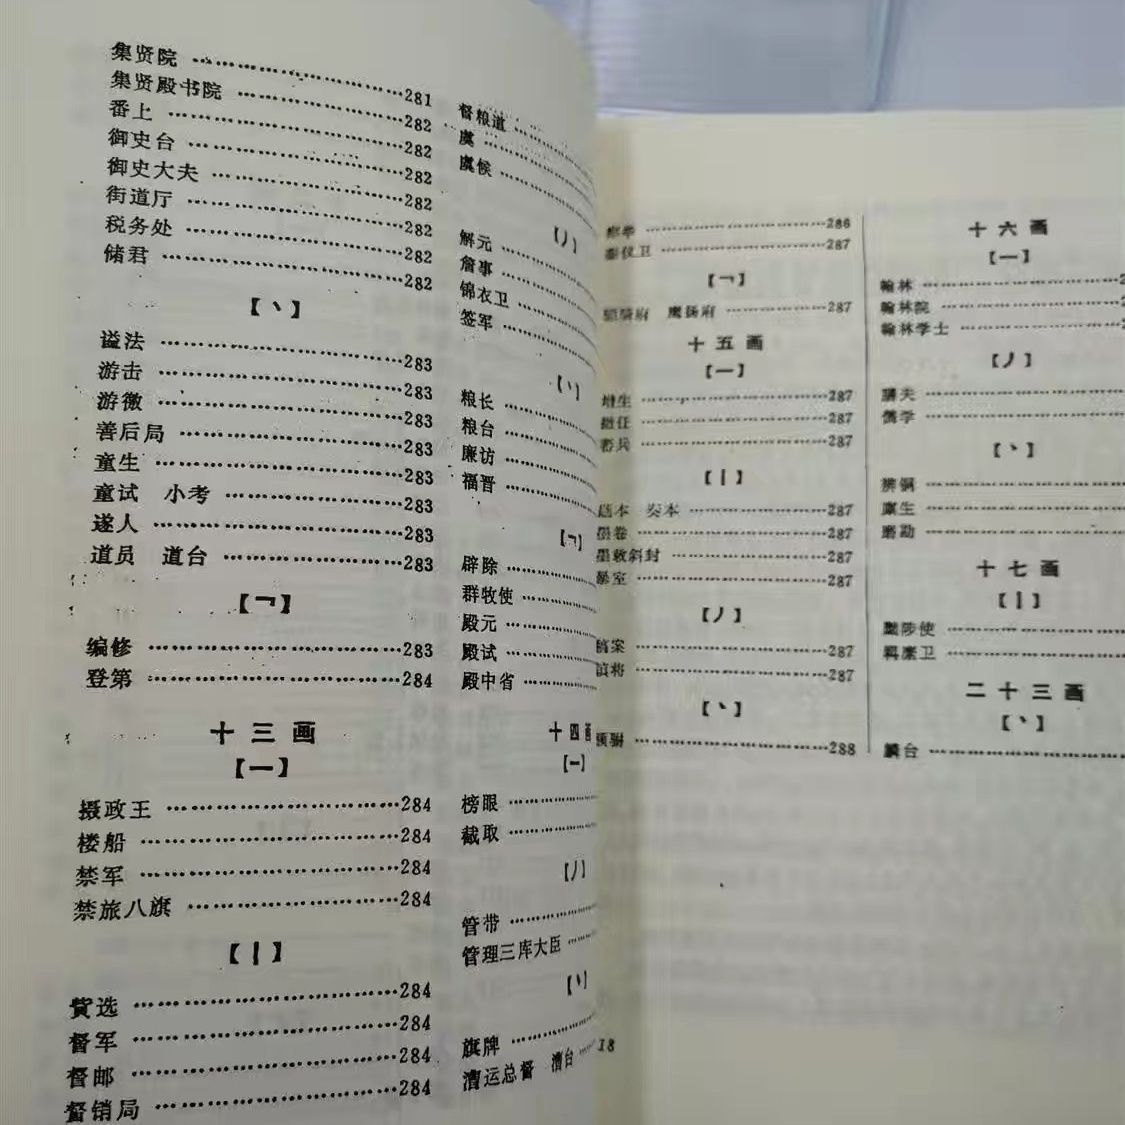 集贤院 …………281
集贤殿书院 …………282
番上 …………282
御史台 …………282
御史大夫 …………282
街道厅 …………282
税务处 …………282
储君 …………282
【丶】
谥法 …………283
游击 …………283
游徼 …………283
善后局 …………283
童生 …………283
童试 小考 …………283
遂人 …………283
道员 道台 …………283
【乛】
编修 …………283
登第 …………284
十三画
【一】
摄政王 …………284
楼船 …………284
禁军 …………284
禁旅八旗 …………284
【丨】
赀选 …………284
督军 …………284
督邮 …………284
督销局 …………284
督粮道 …………
虞 …………
虞候 …………
【丿】
解元 …………
詹事 …………
锦衣卫 …………
签军 …………
【丶】
粮长 …………
粮台 …………
廉访 …………
福晋 …………
【乛】
辟除 …………
群牧使 …………
殿元 …………
殿试 …………
殿中省 …………
十四画
【一】
榜眼 …………
截取 …………
【丿】
管带 …………
管理三库大臣 …………
【丶】
旗牌 …………
漕运总督 漕台 …………
18
…………286
銮仪卫 …………287
【乛】
骠骑府 鹰扬府 …………287
十五画
【一】
增生 …………287
…………287
…………287
【丨】
题本 奏本 …………287
墨卷 …………287
墨敕斜封 …………287
暴室 …………287
【丿】
稿案 …………287
镇将 …………287
【丶】
…………288
十六画
【一】
翰林 …………
翰林院 …………
翰林学士 …………
【丿】
膳夫 …………
儒学 …………
【丶】
辨铜 …………
廪生 …………
磨勘 …………
十七画
【丨】
黜陟使 …………
羁縻卫 …………
二十三画
【丶】
麟台 …………